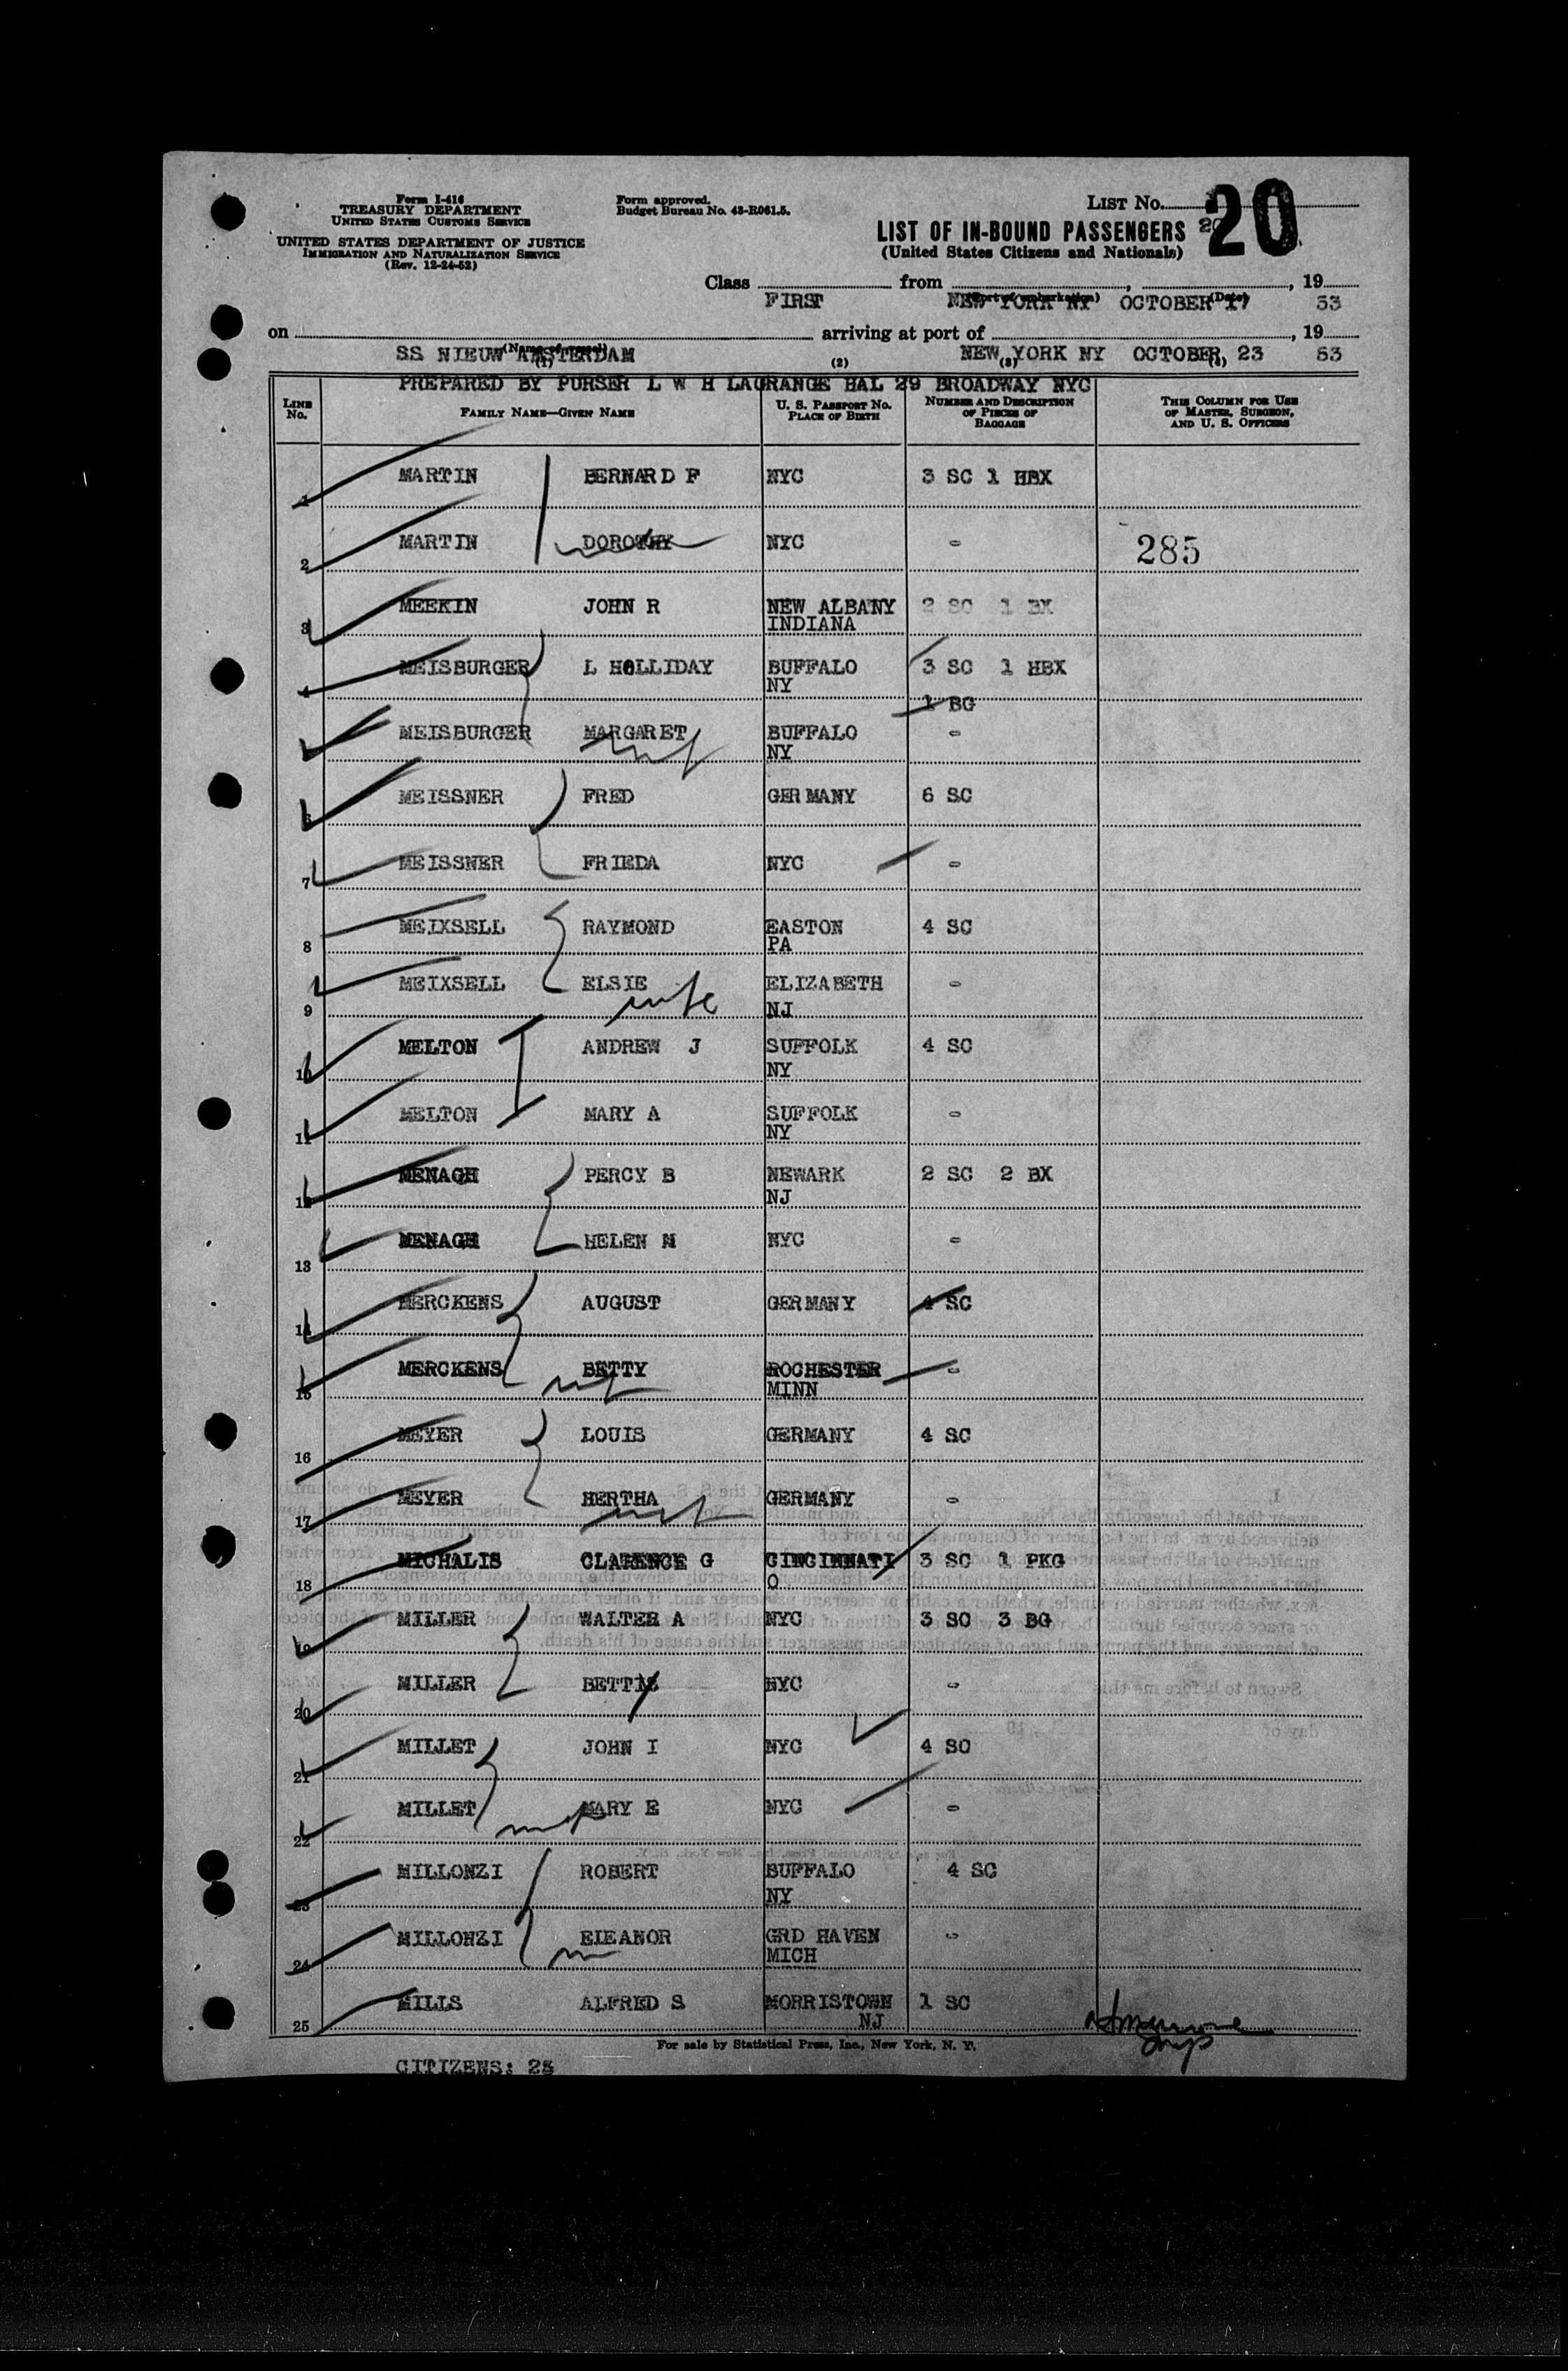 Form I-416
TREASURY DEPARTMENT
UNITED STATES CUSTOMS SERVICE
UNITED STATES DEPARTMENT OF JUSTICE
IMMIGRATION AND NATURALIZATION SERVICE
(Rev. 12-24-52)
Form approved.
Budget Bureau No. 43-R061.5.
LIST No. 20
20
LIST OF IN-BOUND PASSENGERS
(United States Citizens and Nationals)
Class FIRST from NEW YORK NY (Port of embarkation), OCTOBER 17 (Date), 19 53
on SS NIEUW AMSTERDAM (Name of vessel) arriving at port of NEW YORK NY OCTOBER 23, 19 53
(1) (2) (3) (4)
PREPARED BY PURSER L W H LAGRANGE HAL 29 BROADWAY NYC
LINE No. FAMILY NAME—GIVEN NAME U. S. PASSPORT NO. PLACE OF BIRTH NUMBER AND DESCRIPTION OF PIECES OF BAGGAGE THIS COLUMN FOR USE OF MASTER, SURGEON, AND U. S. OFFICERS
1 MARTIN BERNARD F NYC 3 SC 1 HBX
2 MARTIN DOROTHY NYC - 285
3 MEEKIN JOHN R NEW ALBANY INDIANA 2 SC 1 BX
4 MEISBURGER L HOLLIDAY BUFFALO NY 3 SC 1 HBX
1 BG
MEISBURGER MARGARET BUFFALO NY -
wife
6 MEISSNER FRED GERMANY 6 SC
7 MEISSNER FRIEDA NYC -
8 MEIXSELL RAYMOND EASTON PA 4 SC
9 MEIXSELL ELSIE ELIZABETH NJ -
wife
10 MELTON ANDREW J SUFFOLK NY 4 SC
11 MELTON MARY A SUFFOLK NY -
12 MENAGH PERCY B NEWARK NJ 2 SC 2 BX
13 MENAGH HELEN M NYC -
14 MERCKENS AUGUST GERMANY 4 SC
15 MERCKENS BETTY ROCHESTER MINN -
wife
16 MEYER LOUIS GERMANY 4 SC
17 MEYER HERTHA GERMANY -
wife
18 MICHALIS CLARENCE G CINCINNATI O 3 SC 1 PKG
19 MILLER WALTER A NYC 3 SC 3 BG
20 MILLER NYC -
21 MILLET JOHN I NYC 4 SC
22 MILLET MARY E NYC -
wife
23 MILLONZI ROBERT BUFFALO NY 4 SC
24 MILLONZI ELEANOR GRD HAVEN MICH -
25 MILLS ALFRED S MORRISTOWN NJ 1 SC
For sale by Statistical Press, Inc., New York, N. Y.
CITIZENS: 25